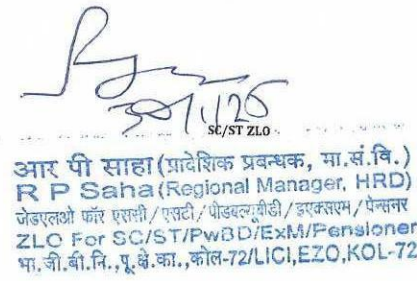 SC/ST ZLO
आर पी साहा (प्रादेशिक प्रबन्धक, मा.सं.वि.)
R P Saha (Regional Manager, HRD)
जेडएलओ फॉर एससी/एसटी/पीडबल्यूबीडी/इएक्सएम/पेन्सनर
ZLO For SC/ST/PwBD/ExM/Pensioner
भा.जी.बी.नि.,पू.क्षे.का.,कोल-72/LICI,EZO,KOL-72